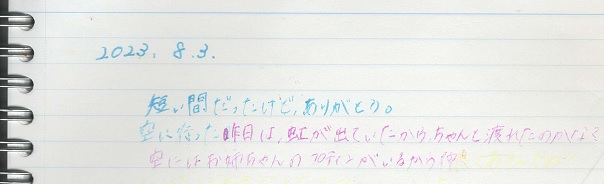 2023. 8.3.
短い間だったけど、ありがとう。
空に帰った昨日は、虹が出ていたから、ちゃんと渡れたのかな
空にはお姉ちゃんの がいるから仲